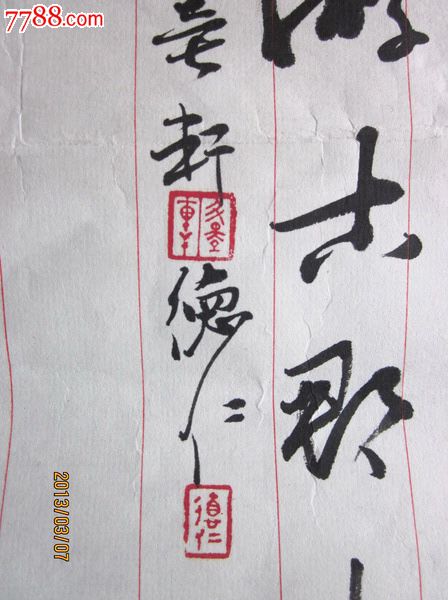 7788.com
古郡
墨軒
德仁
德仁
2013/03/07